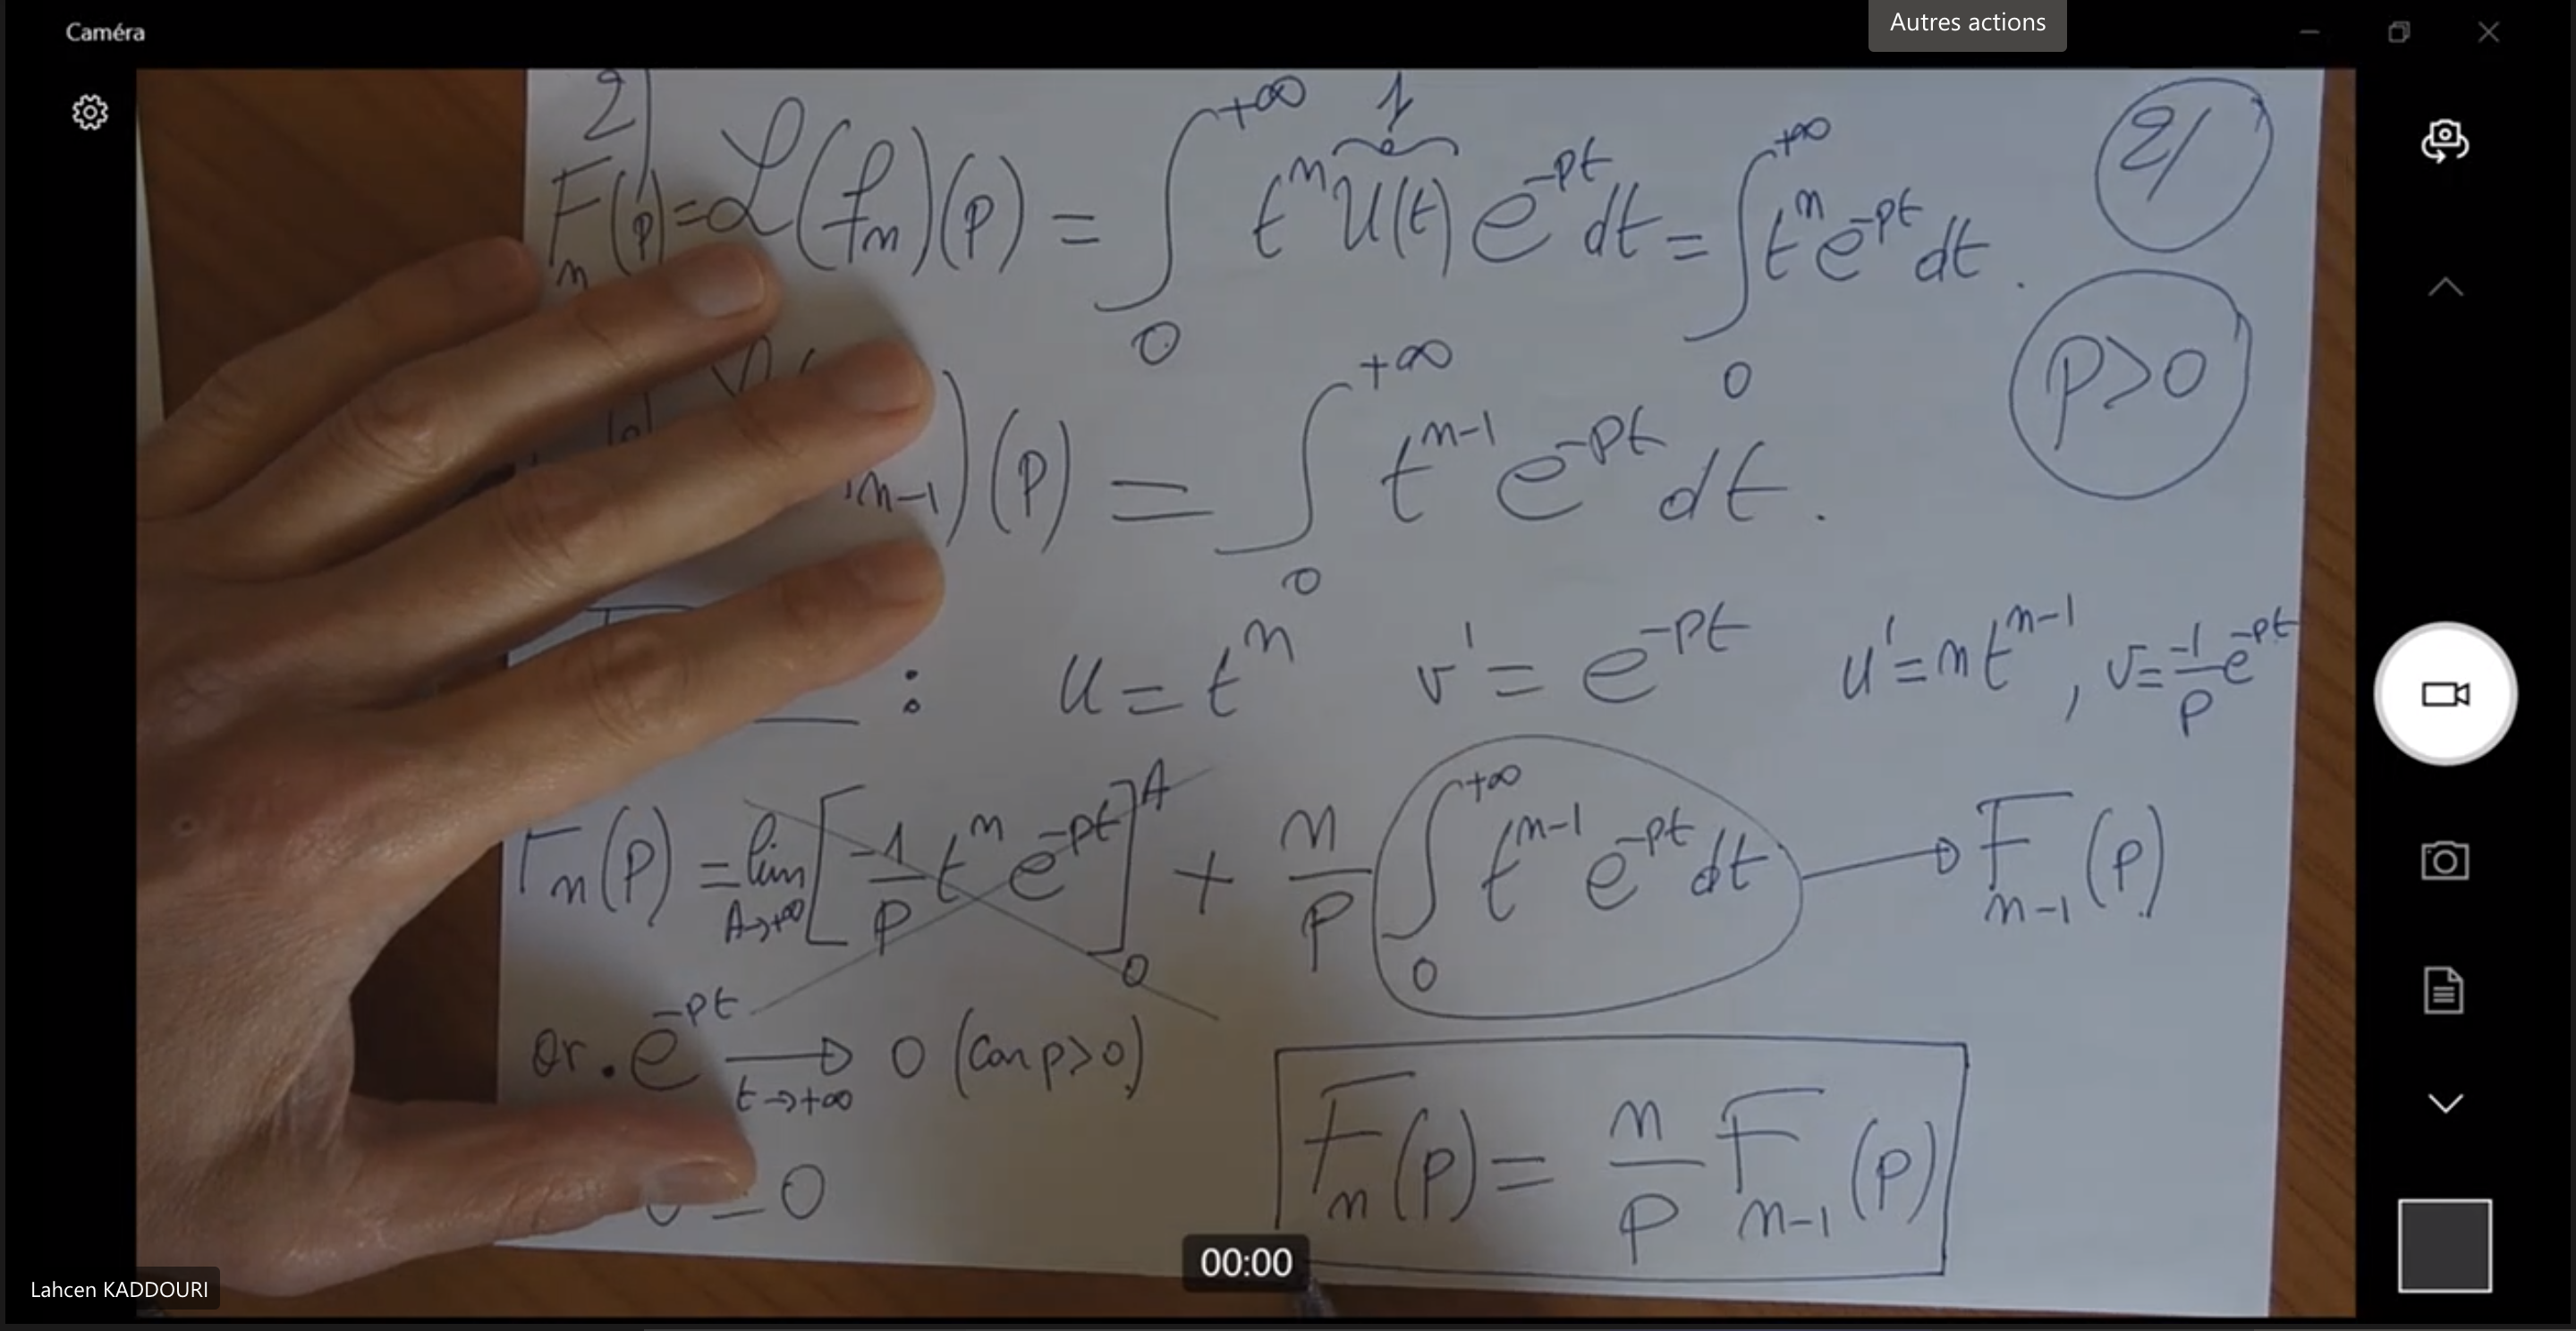 Caméra
Autres actions
2)
F_n(p) = ℒ(f_n)(p) = ∫_0^{+∞} t^n U(t) e^{-pt} dt = ∫_0^{+∞} t^n e^{-pt} dt.
1
2/
p>0
n-1)(p) = ∫_0^{+∞} t^{n-1} e^{-pt} dt.
: u = t^n v' = e^{-pt} u' = n t^{n-1}, v = -1/p e^{-pt}
F_n(p) = lim_{A→+∞} [-1/p t^n e^{-pt}]_0^A + n/p ∫_0^{+∞} t^{n-1} e^{-pt} dt → F_{n-1}(p)
or . e^{-pt} →_{t→+∞} 0 (car p>0)
= 0
F_n(p) = n/p F_{n-1}(p)
00:00
Lahcen KADDOURI